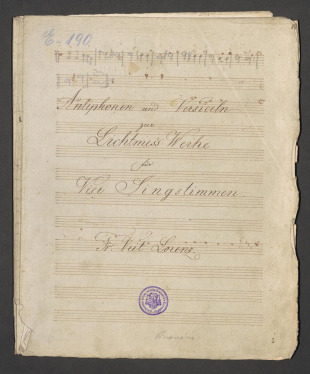 E-190.
Antiphonen und Versikeln
zur
Lichtmess Weihe
für
Vier Singstimmen
Fr. Veit Lorenz